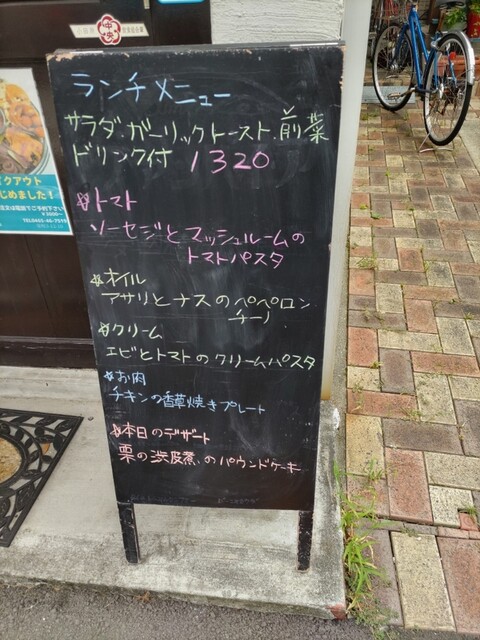 中央
ランチメニュー
サラダ.ガーリックトースト.前菜
ドリンク付 1320
☆トマト
ソーセージとマッシュルームの
トマトパスタ
☆オイル
アサリとナスのペペロン
チーノ
☆クリーム
エビとトマトのクリームパスタ
☆お肉
チキンの香草焼きプレート
☆本日のデザート
栗の渋皮煮のパウンドケーキ
クアウト
じめました!